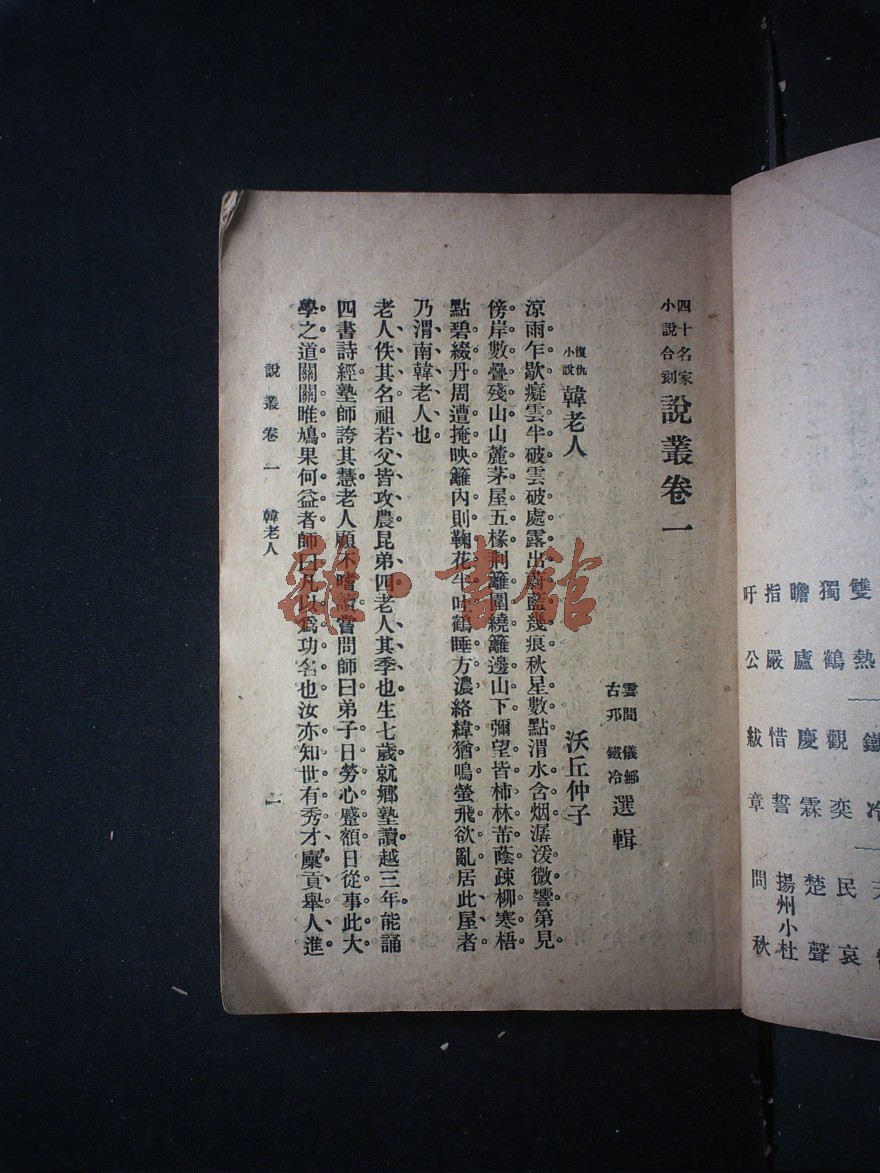 雙熱 鐵冷
獨鶴 觀奕 民哀
瞻廬 慶霖 楚聲
指嚴 惜誓 揚州小杜
吁公 紱章 問秋
四十名家小說合刻 說叢卷一
雲間儀鄉 古邗鐵冷 選輯
復仇小說 韓老人 沃丘仲子
涼雨乍歇癡雲半破雲破處露出蔚藍幾痕秋星數點渭水含烟潺湲微響第見
傍岸數疊殘山山麓茅屋五椽荆籬圍繞籬邊山下彌望皆柿林芾蔭疎柳寒梧
點碧綴丹周遭掩映籬內則鞠花半吐鶴睡方濃絡緯猶鳴螢飛欲亂居此屋者
乃渭南韓老人也
老人佚其名祖若父皆攻農昆弟四老人其季也生七歲就鄉塾讀越三年能誦
四書詩經塾師誇其慧老人顧不嗜讀嘗問師曰弟子日勞心蹙額日從事此大
學之道關關雎鳩果何益者師曰凡以爲功名也汝亦知世有秀才廩貢舉人進
說叢卷一 韓老人 一
雜·書館